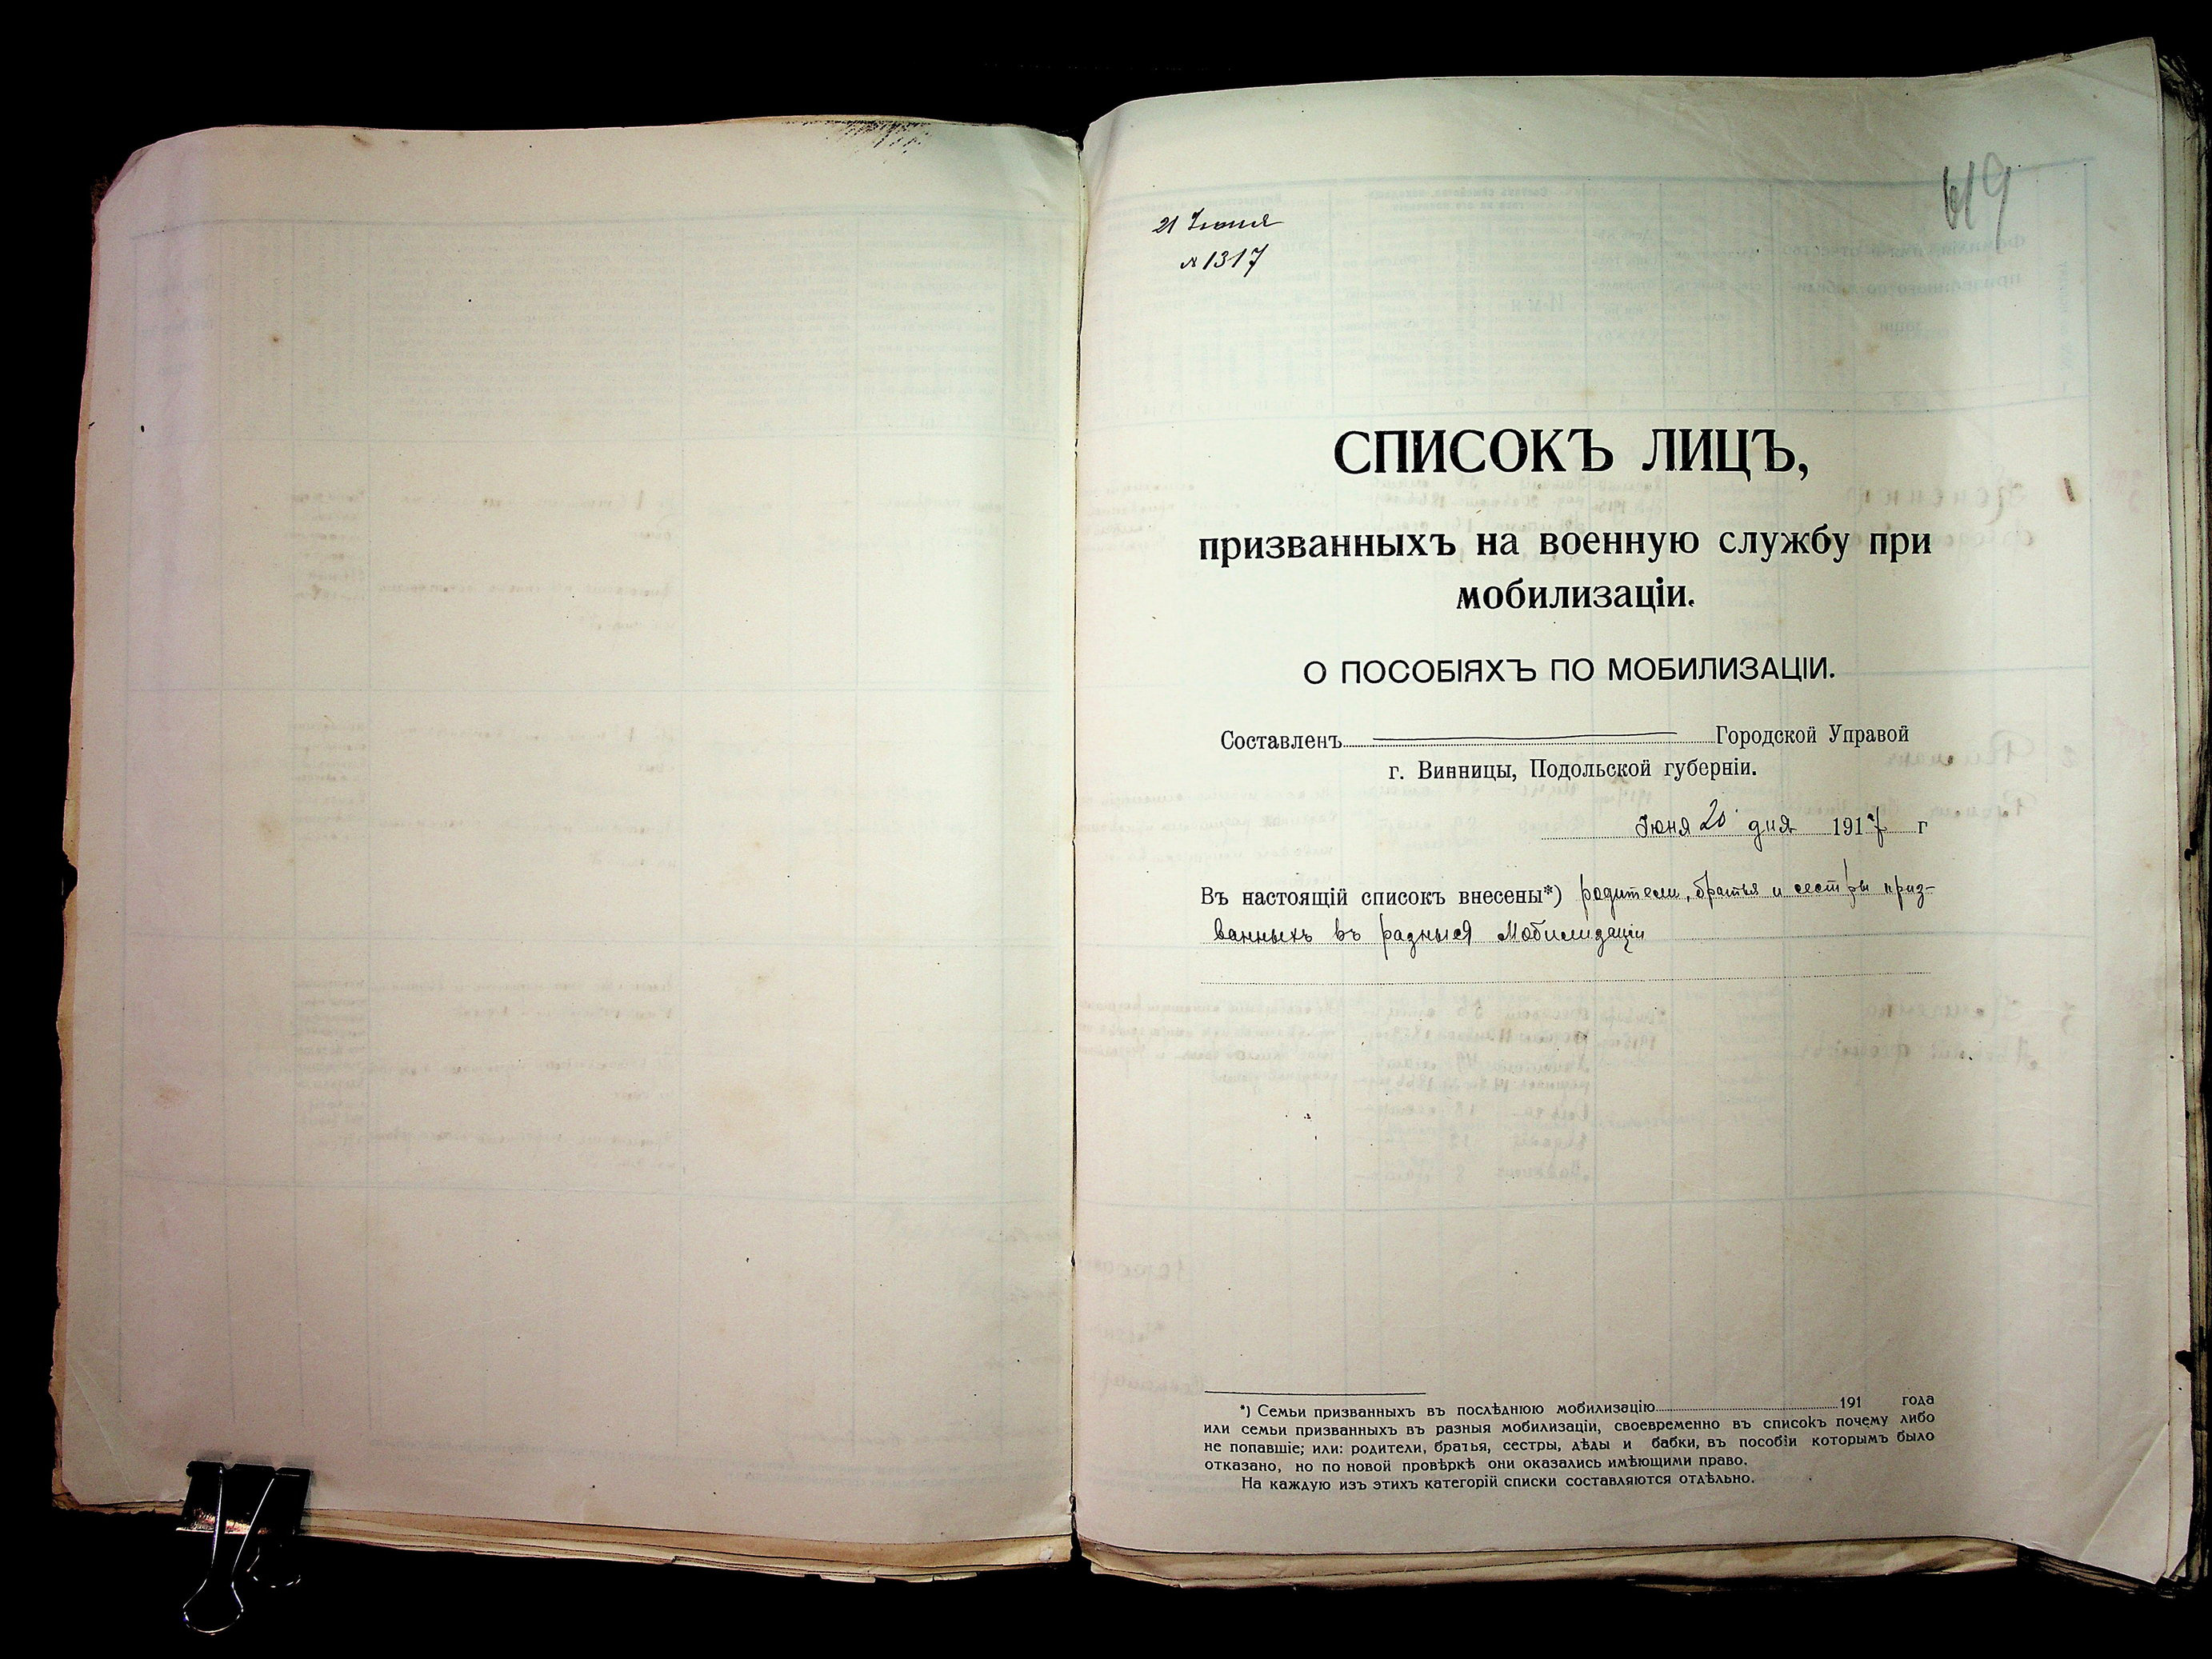 21 Іюня
№ 1317
СПИСОКЪ ЛИЦЪ,
призванныхъ на военную службу при
мобилизаціи.
О ПОСОБІЯХЪ ПО МОБИЛИЗАЦІИ.
Составленъ Городской Управой
г. Винницы, Подольской губерніи.
Іюня 20 дня 1917 г
Въ настоящій списокъ внесены*) родители, братья и сестры приз-
ванныхъ въ разныя Мобилизаціи
*) Семьи призванныхъ въ послѣднюю мобилизацію 191 года
или семьи призванныхъ въ разныя мобилизаціи, своевременно въ списокъ почему либо
не попавшіе; или: родители, братья, сестры, дѣды и бабки, въ пособіи которымъ было
отказано, но по новой провѣркѣ они оказались имѣющими право.
На каждую изъ этихъ категорій списки составляются отдѣльно.